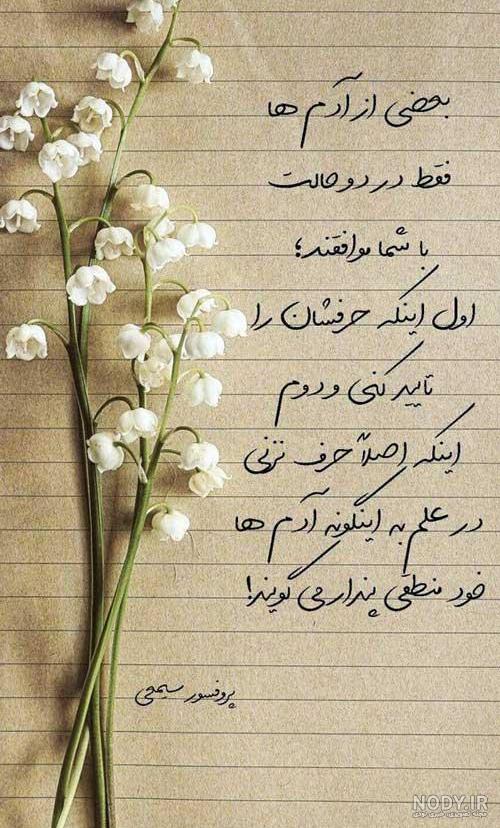 بعضی از آدم ها
فقط در دو حالت
با شما موافقند؛
اول اینکه حرفشان را
تایید کنی و دوم
اینکه اصلاً حرف نزنی
در علم به اینگونه آدم ها
خود منطقی پندار می گویند!
پروفسور سمیعی
NODY.IR